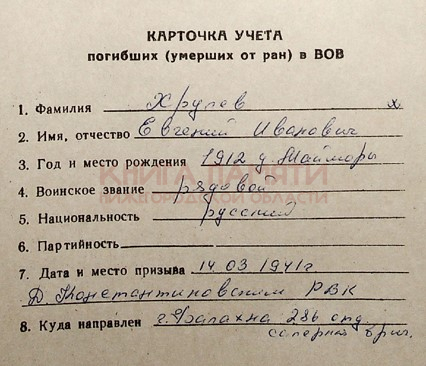 КАРТОЧКА УЧЕТА
погибших (умерших от ран) в ВОВ
1. Фамилия Хрулев х
2. Имя, отчество Евгений Иванович
3. Год и место рождения 1912 д. Майморы
КНИГА ПАМЯТИ
4. Воинское звание рядовой
НИЖЕГОРОДСКОЙ ОБЛАСТИ
5. Национальность русский
6. Партийность
7. Дата и место призыва 14 03 1941г.
Д. Константиновским РВК
8. Куда направлен г. Балахна 286 отд.
саперная бриг.